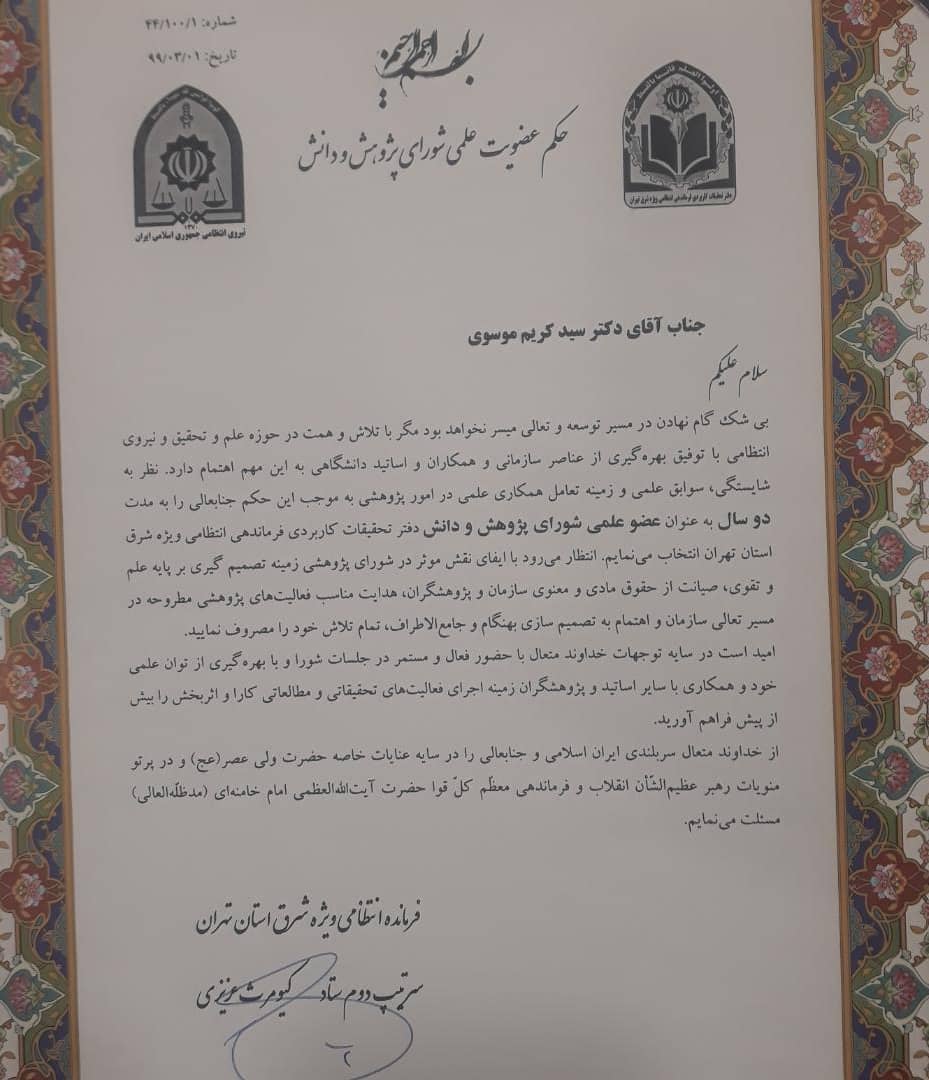 شماره: ۴۴/۱۰۰/۱
تاریخ: ۹۹/۰۳/۰۱
بسم الله الرحمن الرحیم
حکم عضویت علمی شورای پژوهش و دانش
نیروی انتظامی جمهوری اسلامی ایران
دفتر تحقیقات کاربردی فرماندهی انتظامی ویژه شرق تهران
جناب آقای دکتر سید کریم موسوی
سلام علیکم
بی شک گام نهادن در مسیر توسعه و تعالی میسر نخواهد بود مگر با تلاش و همت در حوزه علم و تحقیق و نیروی
انتظامی با توفیق بهره‌گیری از عناصر سازمانی و همکاران و اساتید دانشگاهی به این مهم اهتمام دارد. نظر به
شایستگی، سوابق علمی و زمینه تعامل همکاری علمی در امور پژوهشی به موجب این حکم جنابعالی را به مدت
دو سال به عنوان عضو علمی شورای پژوهش و دانش دفتر تحقیقات کاربردی فرماندهی انتظامی ویژه شرق
استان تهران انتخاب می‌نمایم. انتظار می‌رود با ایفای نقش موثر در شورای پژوهشی زمینه تصمیم گیری بر پایه علم
و تقوی، صیانت از حقوق مادی و معنوی سازمان و پژوهشگران، هدایت مناسب فعالیت‌های پژوهشی مطروحه در
مسیر تعالی سازمان و اهتمام به تصمیم سازی بهنگام و جامع‌الاطراف، تمام تلاش خود را مصروف نمایید.
امید است در سایه توجهات خداوند متعال با حضور فعال و مستمر در جلسات شورا و با بهره‌گیری از توان علمی
خود و همکاری با سایر اساتید و پژوهشگران زمینه اجرای فعالیت‌های تحقیقاتی و مطالعاتی کارا و اثربخش را بیش
از پیش فراهم آورید.
از خداوند متعال سربلندی ایران اسلامی و جنابعالی را در سایه عنایات خاصه حضرت ولی عصر(عج) و در پرتو
منویات رهبر عظیم‌الشّأن انقلاب و فرماندهی معظّم کلّ قوا حضرت آیت‌الله‌العظمی امام خامنه‌ای (مدظلّه‌العالی)
مسئلت می‌نمایم.
فرمانده انتظامی ویژه شرق استان تهران
سرتیپ دوم ستاد کیومرث عزیزی